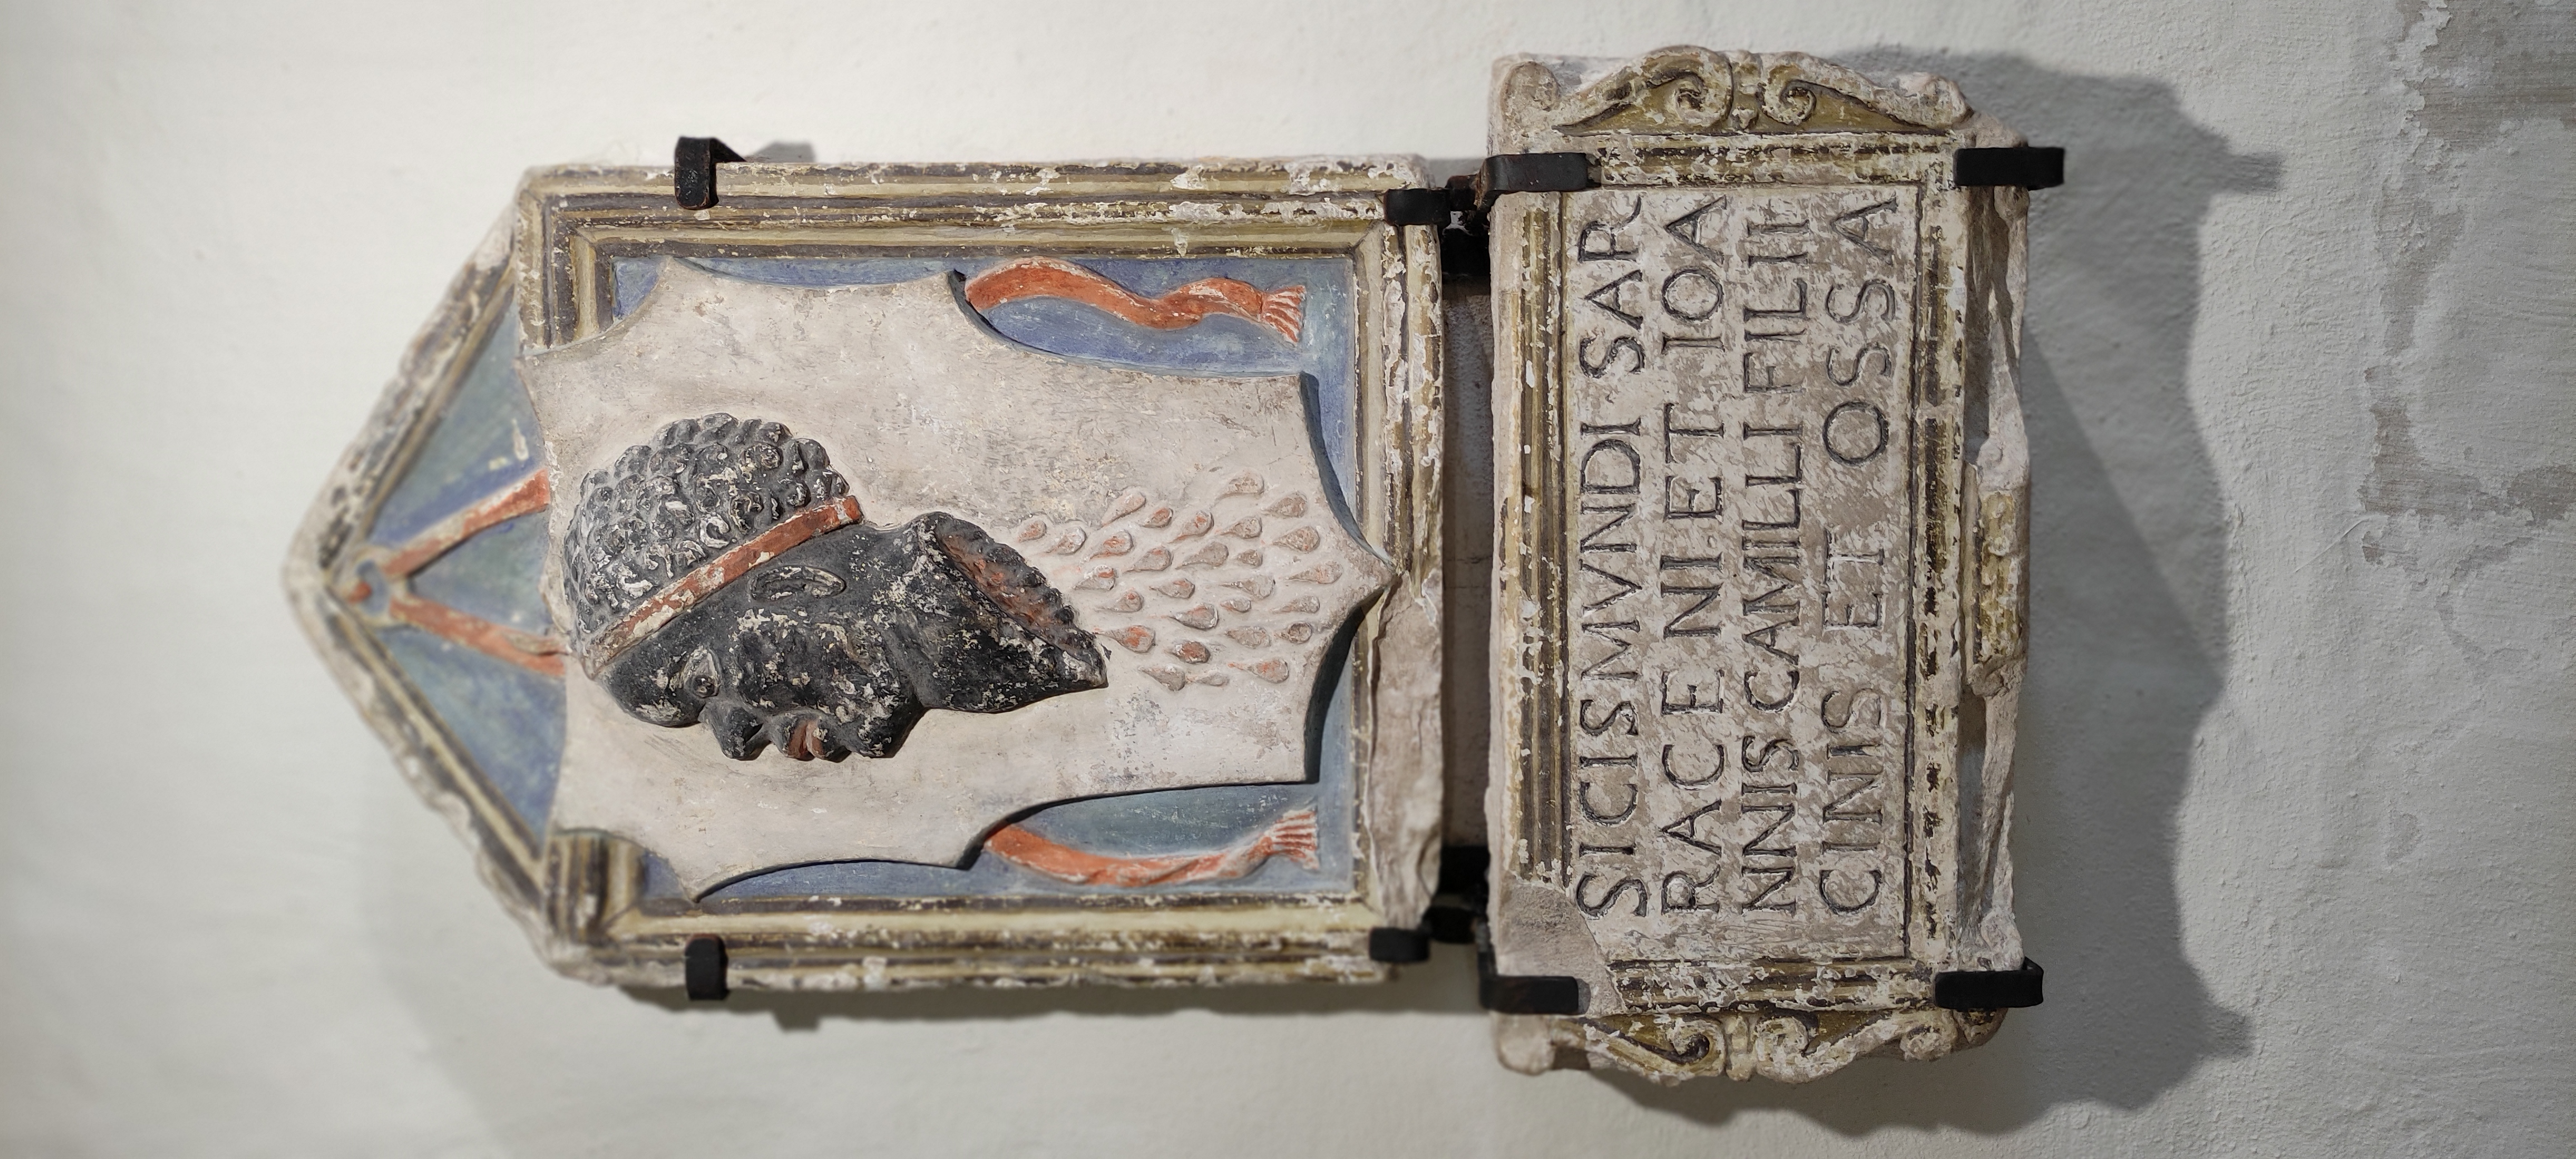 SICISMVNDI SAR
RACENI ET IOA
NNIS CAMILLI FILII
CINIS ET OSSA